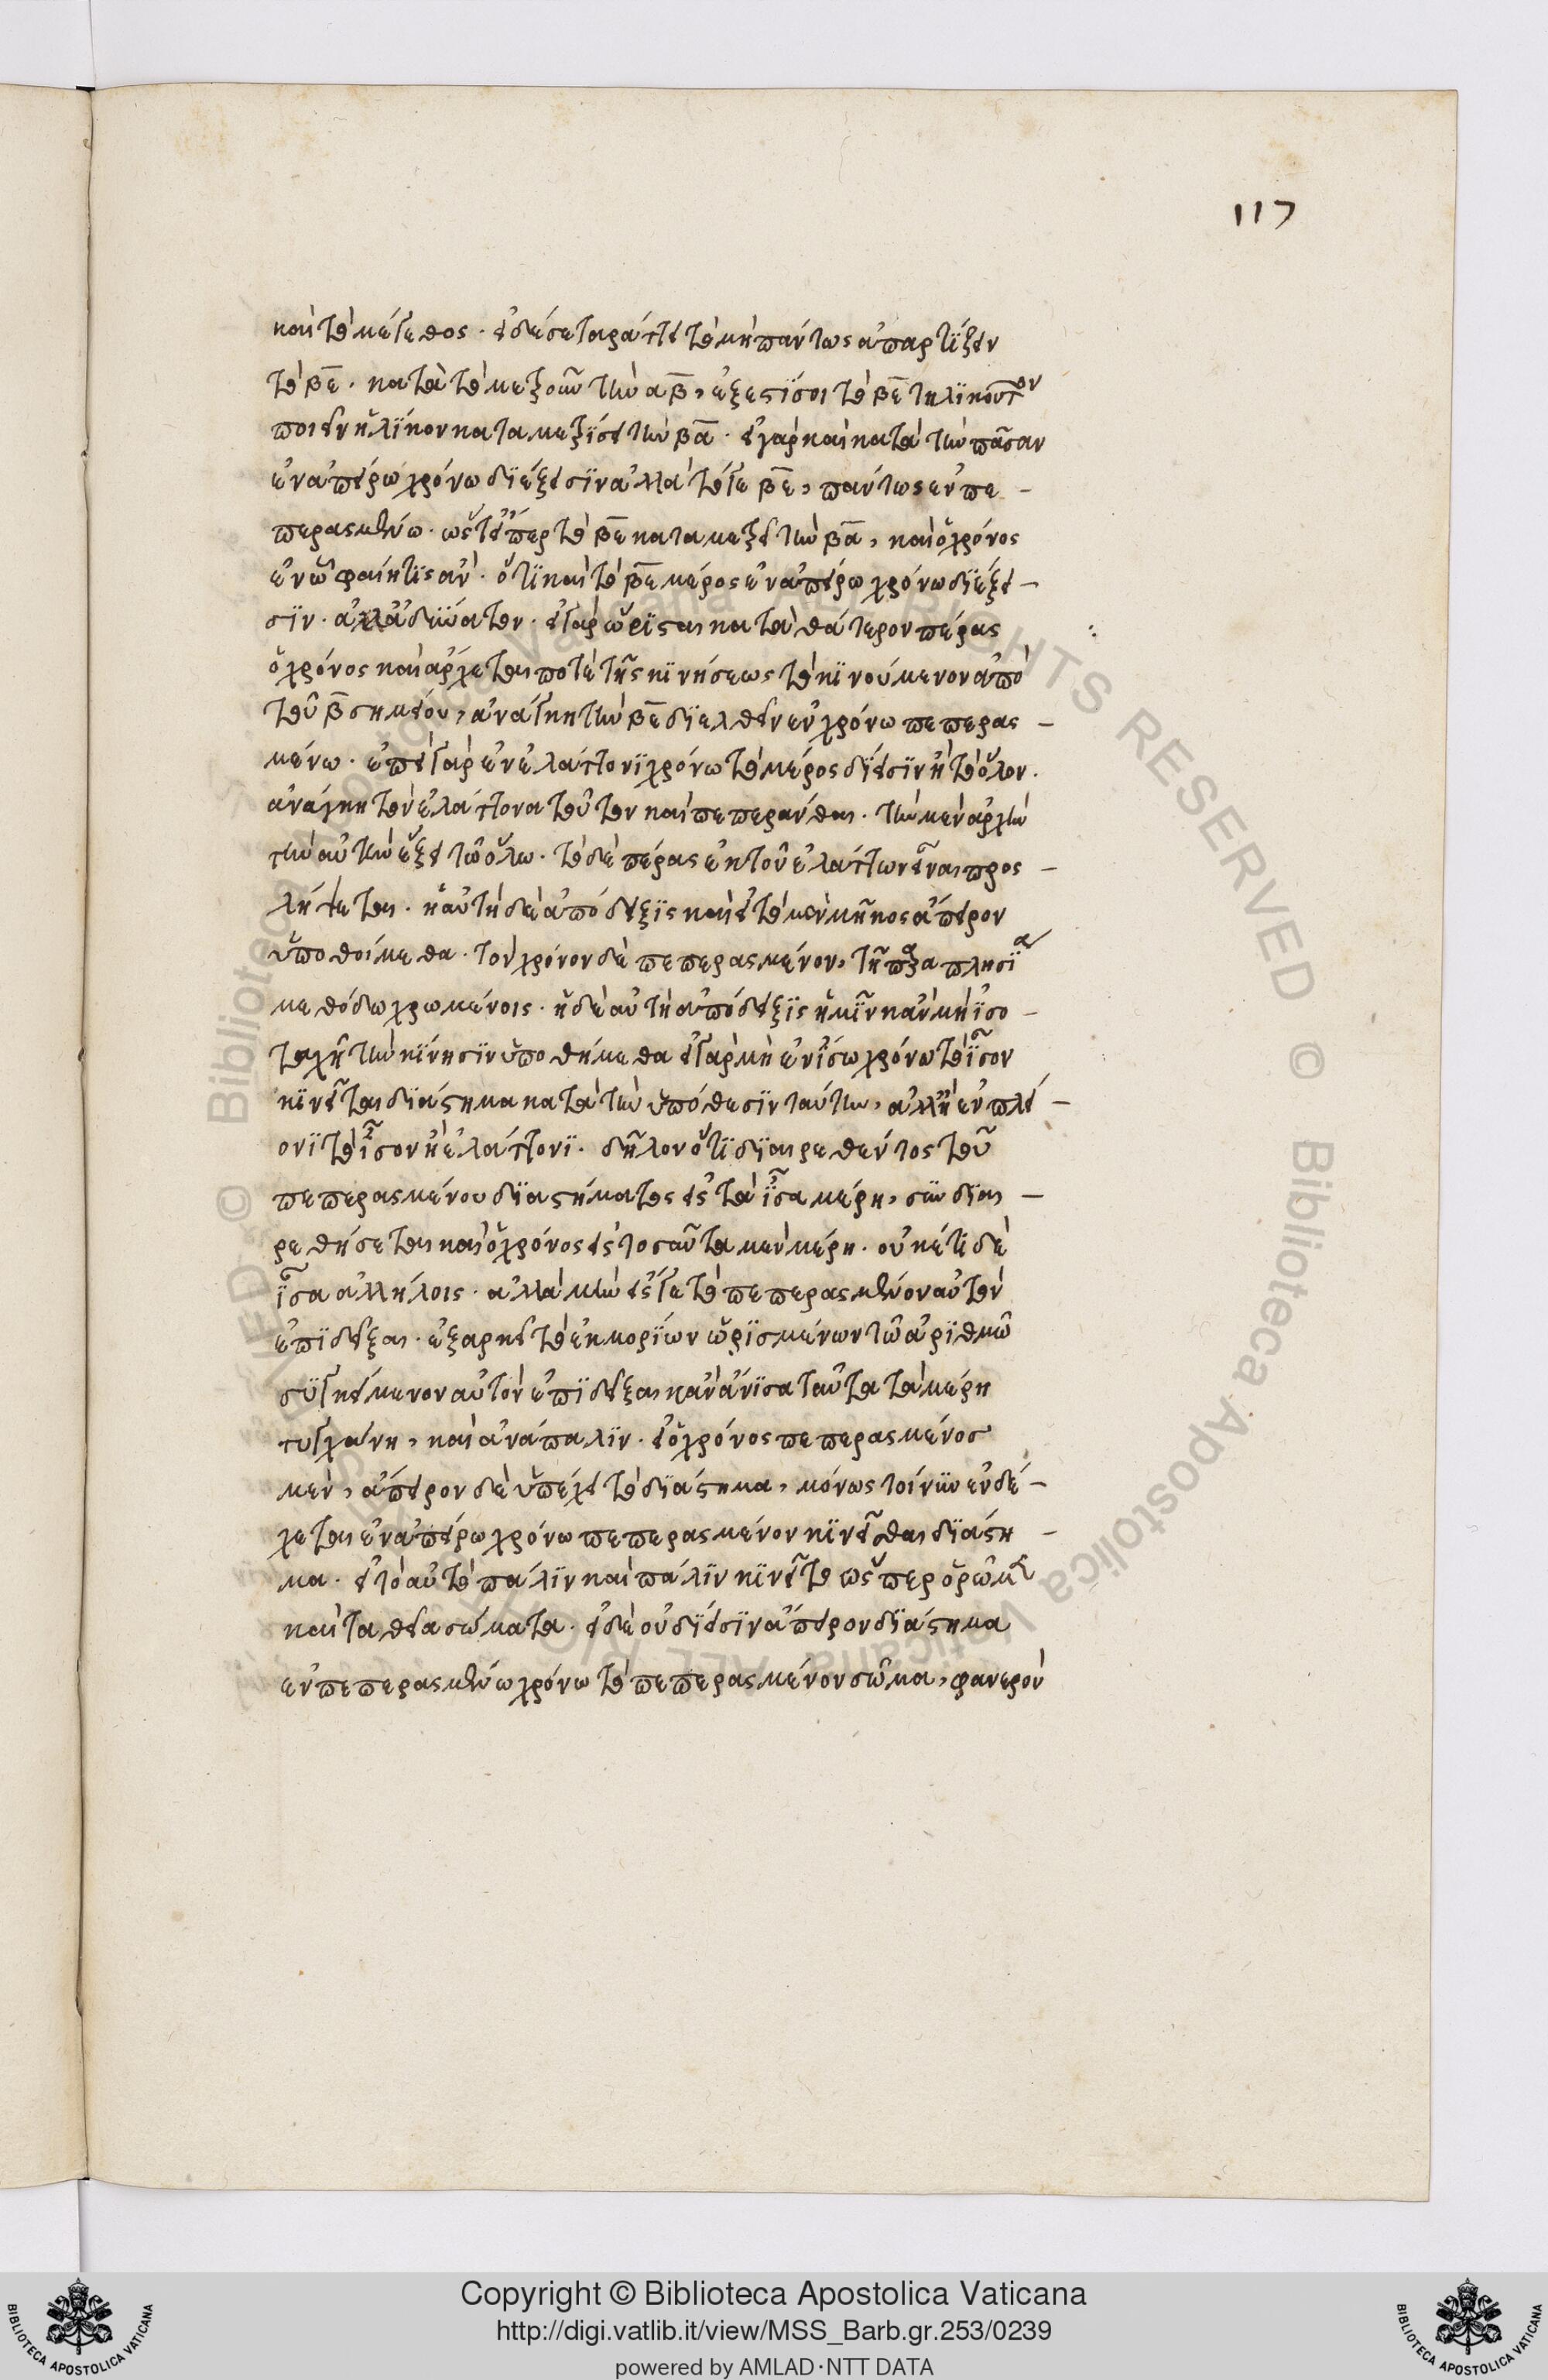 117
καὶ τὸ μέγεθος. εἰ δέ σε ταράττει τὸ μὴ πάντως ἀπαρτίζειν
τὸ β̅ε̅. κατὰ τὸ μετροῦν τὴν α̅β̅, ἔξεστί σοι τὸ β̅ε̅ τηλικοῦτον
ποιεῖν ἡλίκον καταμετρήσει τὴν β̅α̅. εἰ γὰρ καὶ κατὰ τὴν πᾶσαν
ἐν ἀπείρω χρόνω διέξεισιν ἀλλὰ τό γε β̅ε̅, πάντως ἐν πε-
περασμένω. ὥστ' εἴπερ τὸ β̅ε̅ καταμετρεῖ τὴν β̅α̅, καὶ ὁ χρόνος
ἐν ᾧ φαίη τις ἂν. ὅτι καὶ τὸ β̅ε̅ μέρος ἐν ἀπείρω χρόνω διέξει-
σιν. ἀλλ' ἀδύνατον. εἰ γὰρ ὥρισται κατὰ θάτερον πέρας
ὁ χρόνος καὶ ἄρχεται ποτὲ τῆς κινήσεως τὸ κινούμενον ἀπὸ
τοῦ β̅ σημείου, ἀνάγκη τὴν β̅ε̅ διελθεῖν ἐν χρόνω πεπερασ-
μένω. ἐπεὶ γὰρ ἐν ἐλάττονι χρόνω τὸ μέρος δίεισιν ἢ τὸ ὅλον.
ἀνάγκη τὸν ἐλάττονα τοῦτον καὶ πεπεράνθαι. τὴν μὲν ἀρχὴν
τὴν αὐτὴν ἕξει τῶ ὅλω. τὸ δὲ πέρας ἐκ τοῦ ἐλάττων εἶναι προσ-
λήψεται. ἡ αὐτὴ δὲ ἀπόδειξις καὶ εἰ τὸ μὲν μῆκος ἄπειρον
ὑποθοίμεθα. τὸν χρόνον δὲ πεπερασμένον, τῇ παραπλησία
μεθόδω χρωμένοις. ἡ δὲ αὐτὴ ἀπόδειξις ἡμῖν κἂν μὴ ἰσο-
ταχῆ τὴν κίνησιν ὑποθήμεθα εἰ γὰρ μὴ ἐν ἴσω χρόνω τὸ ἴσον
κινεῖται διάστημα κατὰ τὴν ὑπόθεσιν ταύτην, ἀλλ' ἢ ἐν πλεί-
ονι τὸ ἴσον ἢ ἐλάττονι. δῆλον ὅτι διαιρεθέντος τοῦ
πεπερασμένου διαστήματος εἰς τὰ ἴσα μέρη, συνδιαι-
ρεθήσεται καὶ ὁ χρόνος εἰς τοσαῦτα μὲν μέρη. οὐκέτι δὲ
ἴσα ἀλλήλοις. ἀλλὰ μὴν εἴς γε τὸ πεπερασμένον αὐτὸν
ἐπιδεῖξαι. ἐξαρκεῖ τὸ ἐκ μορίων ὡρισμένων τῶ ἀριθμῶ
συγκείμενον αὐτὸν ἐπιδεῖξαι κἂν ἄνισα ταῦτα τὰ μέρη
τυγχάνη, καὶ ἀνάπαλιν. εἰ ὁ χρόνος πεπερασμένος
μὲν, ἄπειρον δὲ ὑπέχει τὸ διάστημα, μόνως τοίνυν ἐνδέ-
χεται ἐν ἀπείρω χρόνω πεπερασμένον κινεῖσθαι διάστη-
μα. εἰ τὸ αὐτὸ πάλιν καὶ πάλιν κινεῖτο ὥσπερ ὁρῶμεν
καὶ τὰ θεῖα σώματα. εἰ δὲ οὐ δίεισιν ἄπειρον διάστημα
ἐν πεπερασμένω χρόνω τὸ πεπερασμένον σῶμα, φανερὸν
Copyright © Biblioteca Apostolica Vaticana
http://digi.vatlib.it/view/MSS_Barb.gr.253/0239
powered by AMLAD·NTT DATA